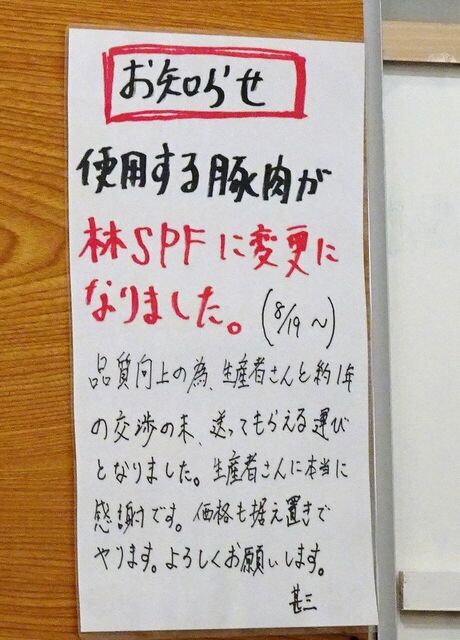 お知らせ
使用する豚肉が
林SPFに変更に
なりました。(8/19～)
品質向上の為、生産者さんと約1年
の交渉の末、送ってもらえる運び
となりました。生産者さんに本当に
感謝です。価格も据え置きで
やります。よろしくお願いします。
甚三